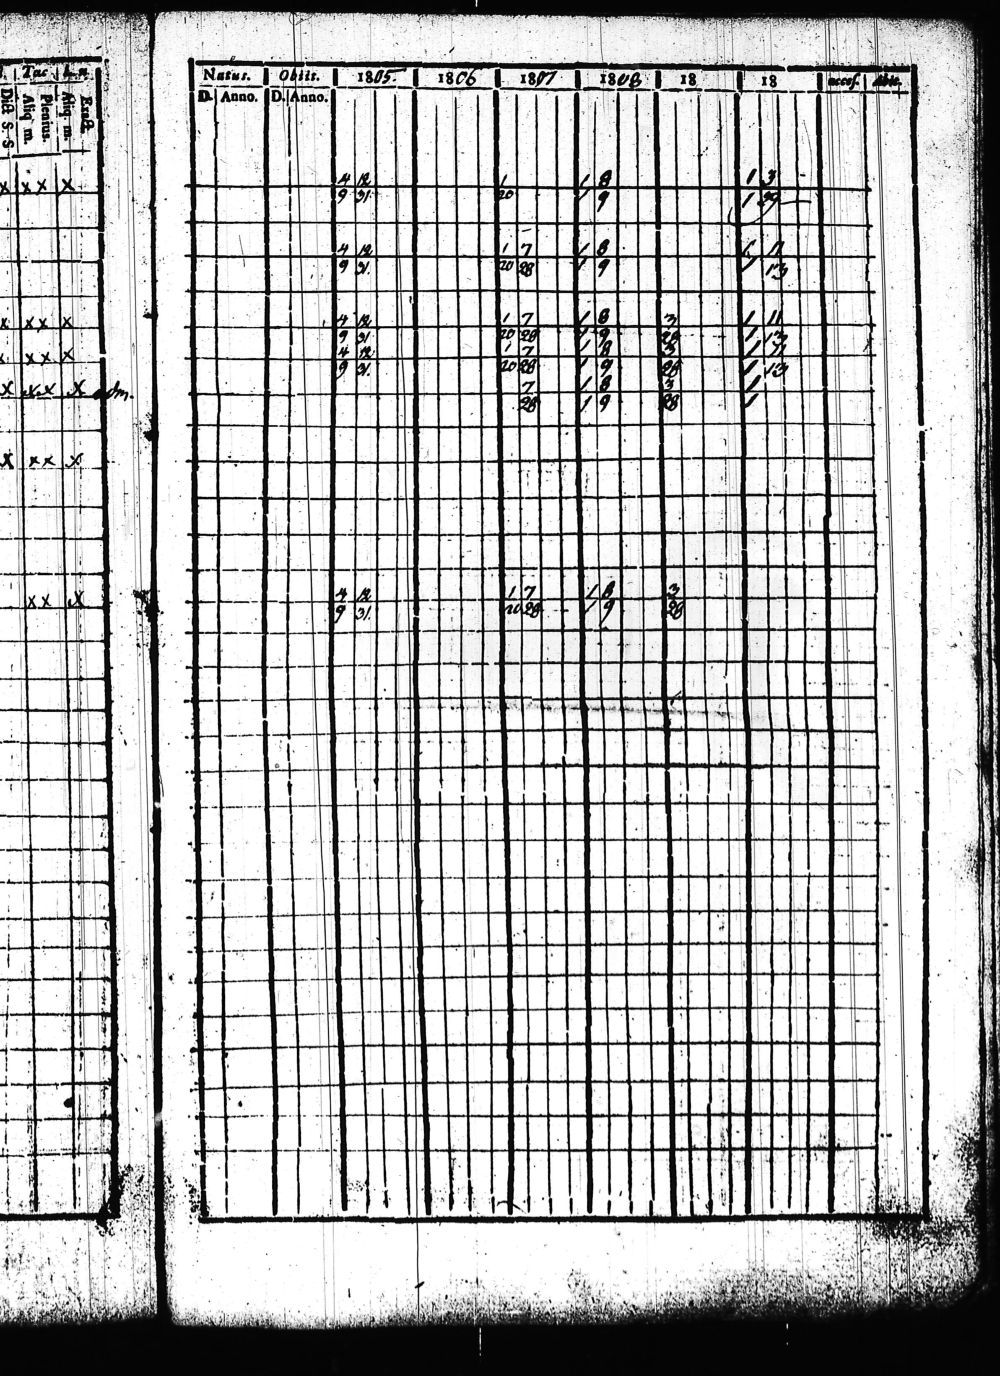 Tac L.n.
Did S. S
Aliq m.
Plenius.
Aliq m.
Exact.
Natus. Obiit. 1805. 1806 1807 1808 18 18 accef. Abit.
D. Anno. D. Anno.
x x x x 4 12 1 1 8 1 3
9 31. 20 1 9 1 29
4 12 1 7 1 8 1 11
9 31. 20 28 1 9 1 13
x x x x 4 12 1 7 1 8 3 1 11
9 31 20 28 1 9 28 1 13
x x x 4 12 1 7 1 8 3 1 11
9 31. 20 28 1 9 28 1 13
x x x x adm. 7 1 8 3 1
28 1 9 28 1
x x x x
x x x 4 12 1 7 1 8 3
9 31. 20 28 1 9 28